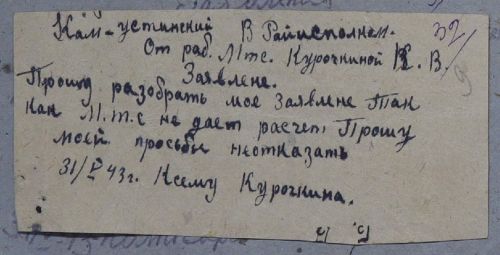 Кам-устинский В Райисполком.
От раб. Мтс. Курочкиной К. В.
Заявлене.
Прошу разобрать мое Заявлене Так
как М.т.с не дает расчет, Прошу
моей просьбы неотказать
31/V 43г. К сему Курочкина.
32